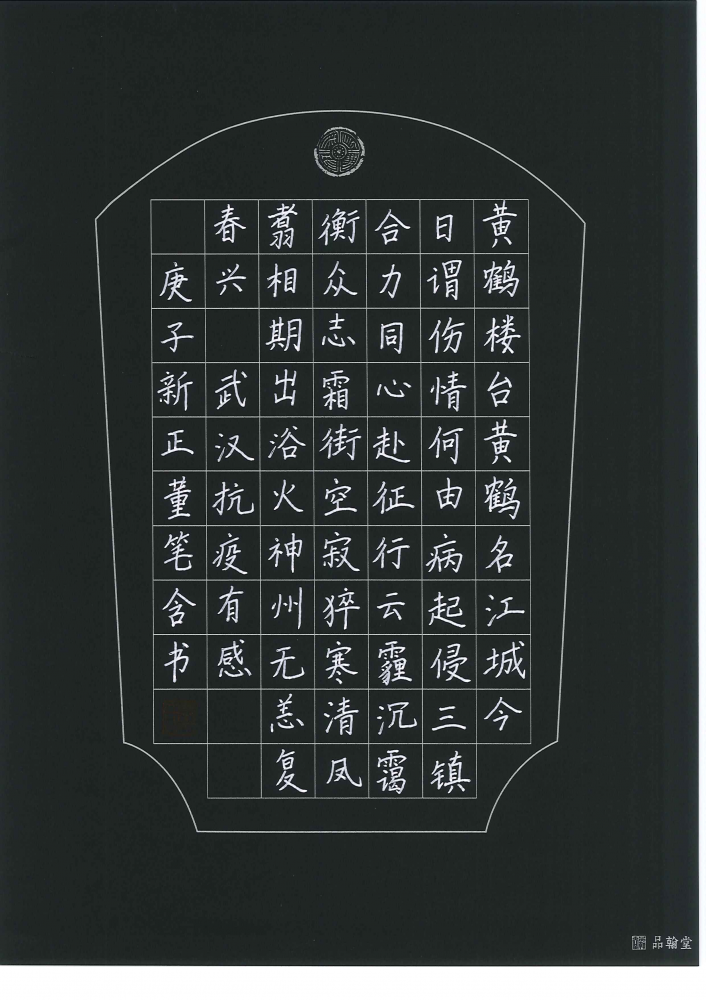 黄鹤楼台黄鹤名江城今
日谓伤情何由病起侵三镇
合力同心赴征行云霾沉霭
衡众志霜街空寂猝寒清凤
翥相期出浴火神州无恙复
春兴 武汉抗疫有感
庚子新正董笔含书
品翰堂